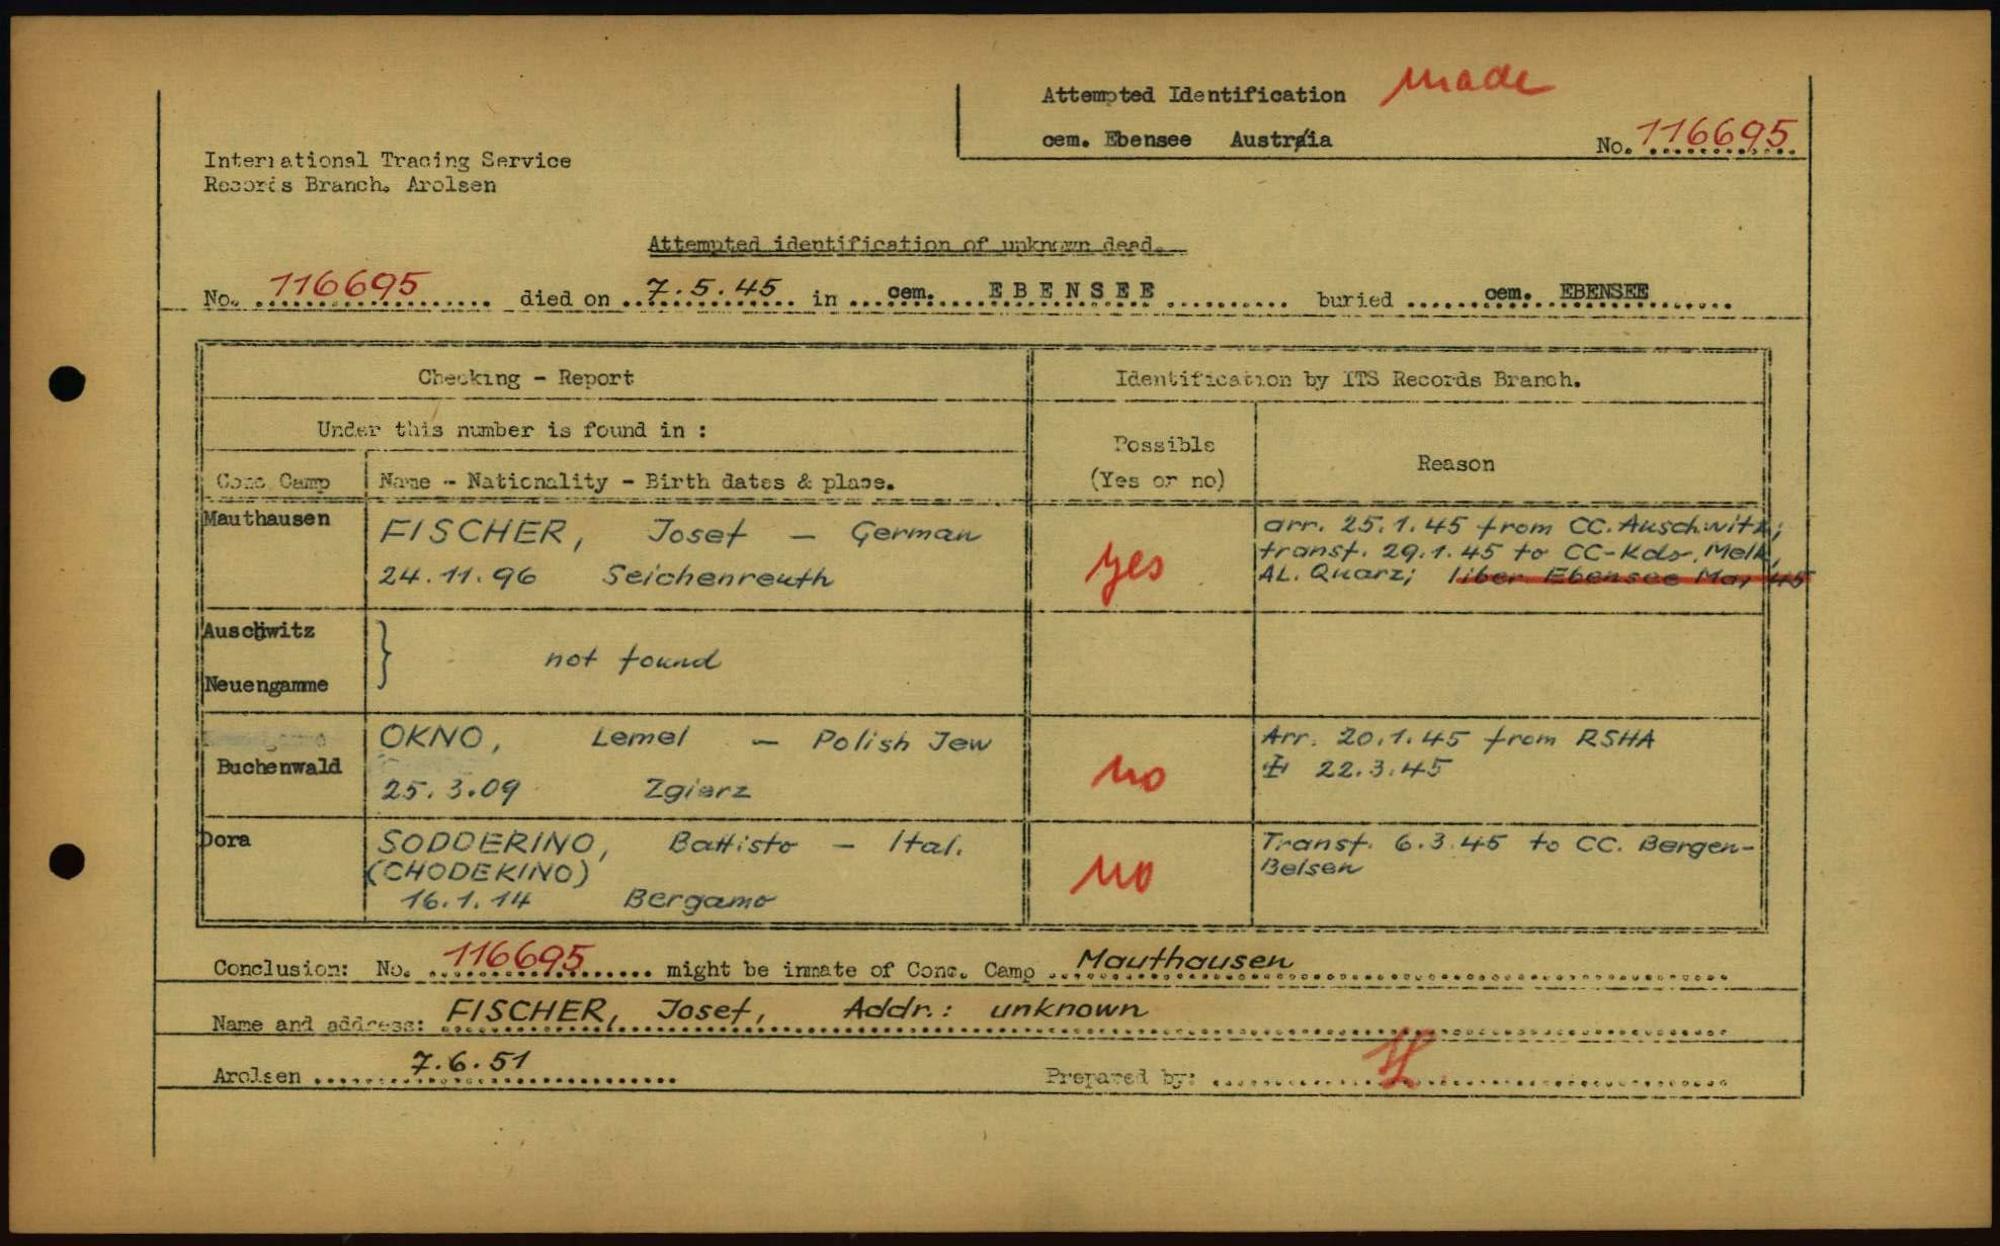 Attempted Identification made
cem. Ebensee Austria No. 116695
International Tracing Service
Records Branch. Arolsen
Attempted identification of unknown dead.
No. 116695 died on 7.5.45 in cem. EBENSEE buried cem. EBENSEE
Checking - Report Identification by ITS Records Branch.
Under this number is found in :
Possible
(Yes or no) Reason
Conc Camp Name - Nationality - Birth dates & place.
Mauthausen FISCHER, Josef — German yes arr. 25.1.45 from CC. Auschwitz;
transf. 29.1.45 to CC-Kdo. Melk,
24.11.96 Seichenreuth AL. Quarz; liber Ebensee May 45
Auschwitz
} not found
Neuengamme
OKNO, Lemel — Polish Jew Arr. 20.1.45 from RSHA
Buchenwald no 22.3.45
25.3.09 Zgierz
Dora SODDERINO, Battisto — Ital. no Transf. 6.3.45 to CC. Bergen-
(CHODEKINO) Belsen
16.1.14 Bergamo
Conclusion: No. 116695 might be inmate of Conc. Camp Mauthausen
Name and address: FISCHER, Josef, Addr.: unknown
Arolsen 7.6.51 Prepared by: